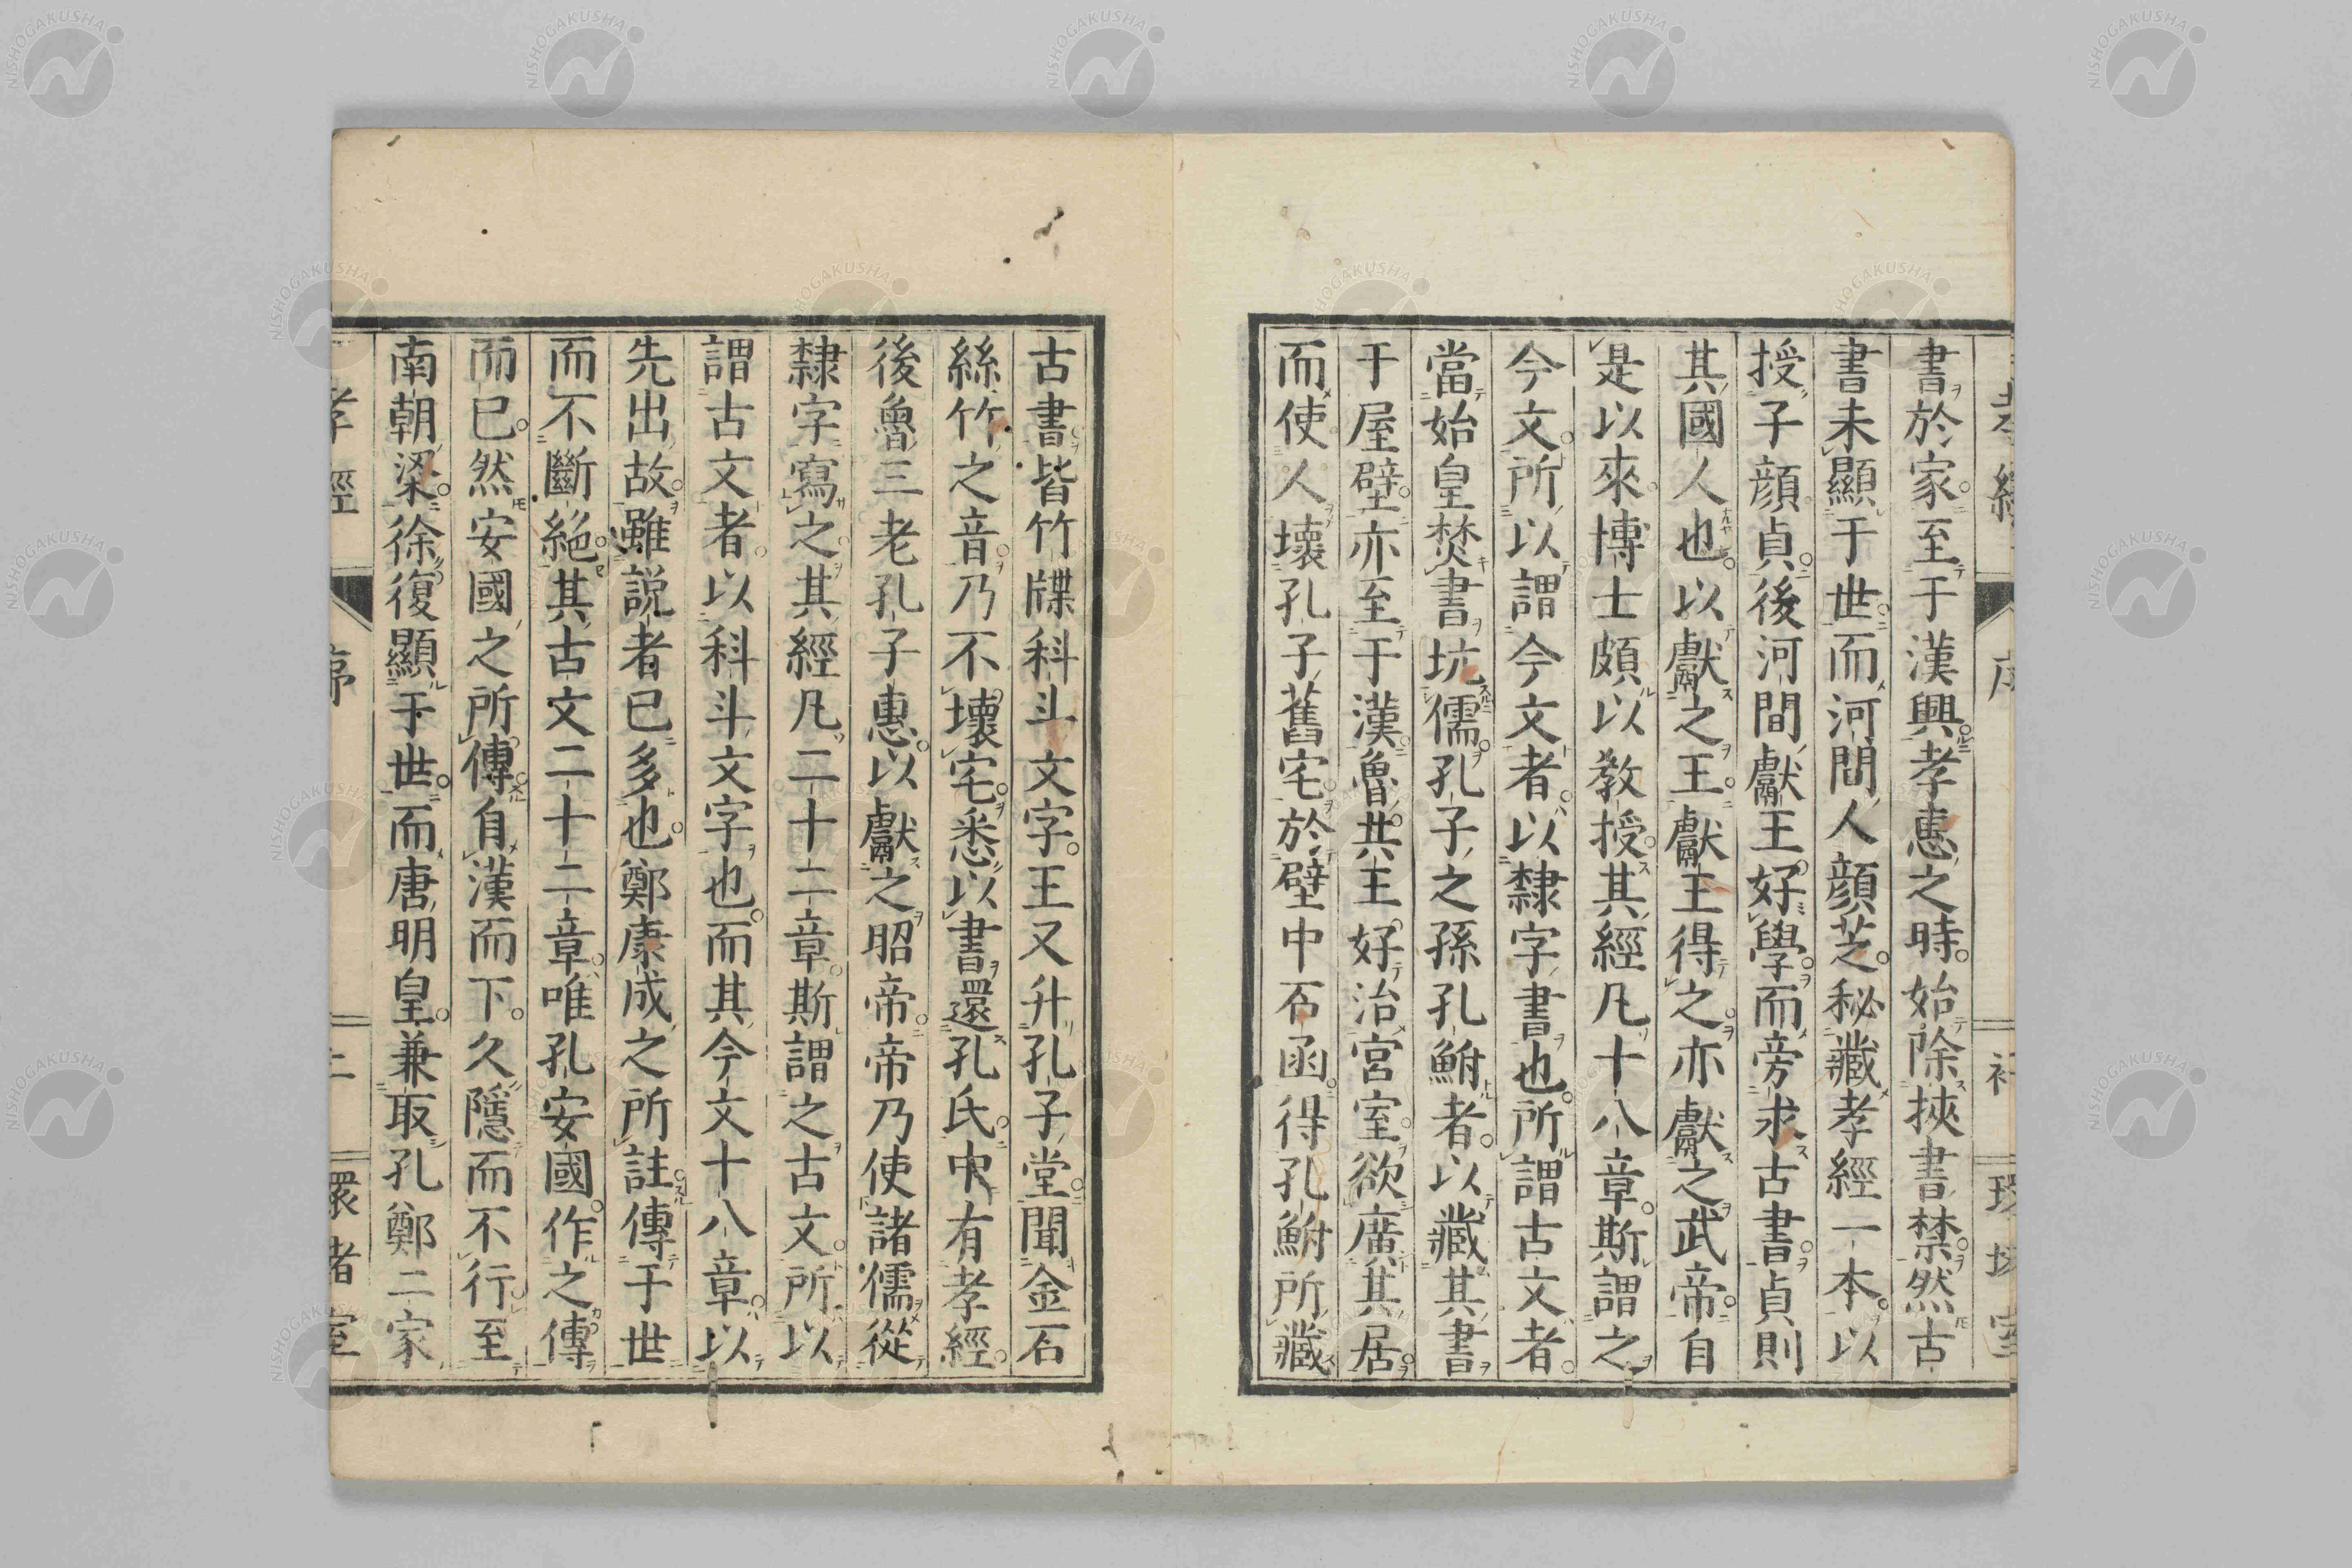 書於家至于漢興孝惠之時始除挾書禁然古
書未顯于世而河間人顔芝秘藏孝經一本以
授子顔貞後河間獻王好學而旁求古書貞則
其國人也以獻之王獻王得之亦獻之武帝自
是以來博士頗以教授其經凡十八章斯謂之
今文所以謂今文者以隸字書也所謂古文者
當始皇焚書坑儒孔子之孫孔鮒者以藏其書
于屋壁亦至于漢魯共王好治宮室欲廣其居
而使人壞孔子舊宅於壁中石函得孔鮒所藏
古書皆竹牒科斗文字王又升孔子堂聞金石
絲竹之音乃不壞宅悉以書還孔氏中有孝經
後魯三老孔子惠以獻之昭帝帝乃使諸儒從
隸字寫之其經凡二十二章斯謂之古文所以
謂古文者以科斗文字也而其今文十八章以
先出故雖説者已多也鄭康成之所註傳于世
而不斷絕其古文二十二章唯孔安國作之傳
而已然安國之所傳自漢而下久隱而不行至
南朝梁徐復顯于世而唐明皇兼取孔鄭二家
孝經 序 二 環堵室
NISHOGAKUSHA